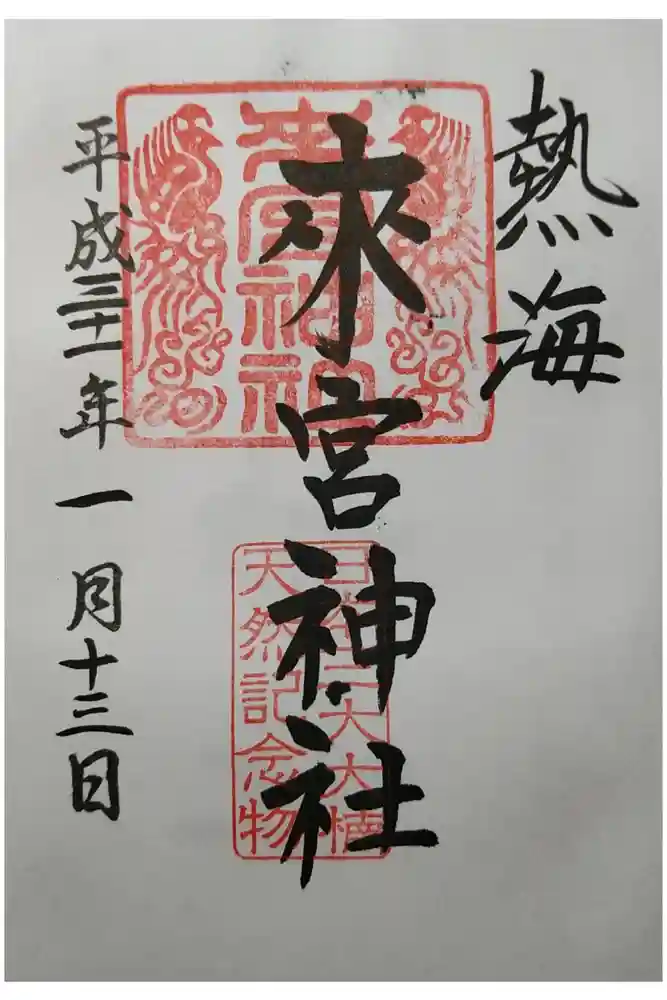 熱海
來宮神社
來宮神社
日本三大大楠
天然記念物
平成三十一年一月十三日